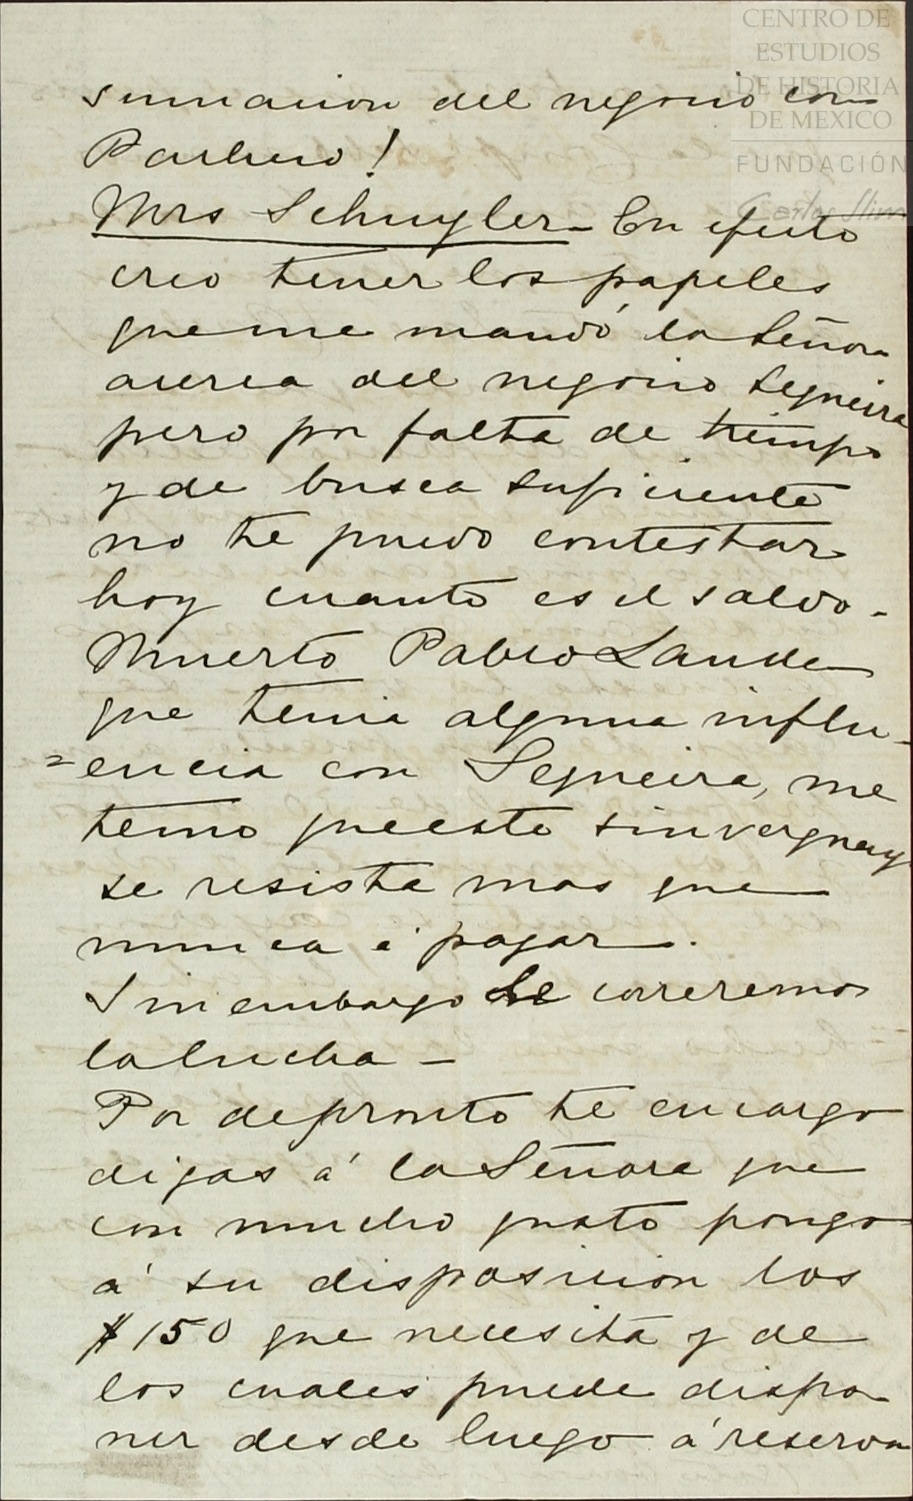 CENTRO DE
ESTUDIOS
DE HISTORIA
DE MEXICO
FUNDACIÓN
Carlos Slim
sumacion del negocio con
Pacheco!
Mrs Schuyler - En efecto
creo tener los papeles
que me mandó la Señora
acerca del negocio Sequeira
pero por falta de tiempo
y de busca suficiente
no te puedo contestar
hoy cuanto es el saldo.
Muerto Pablo Lande
que tenia alguna influ-
=encia con Sequeira, me
temo que este sinverguenz
se resista mas que
nunca á pagar.
Sin embargo le correremos
la lucha -
Por de pronto te encargo
digas á la Señora que
con mucho gusto pongo
á su disposicion los
$150 que necesita y de
los cuales puede dispo
ner desde luego á reserva